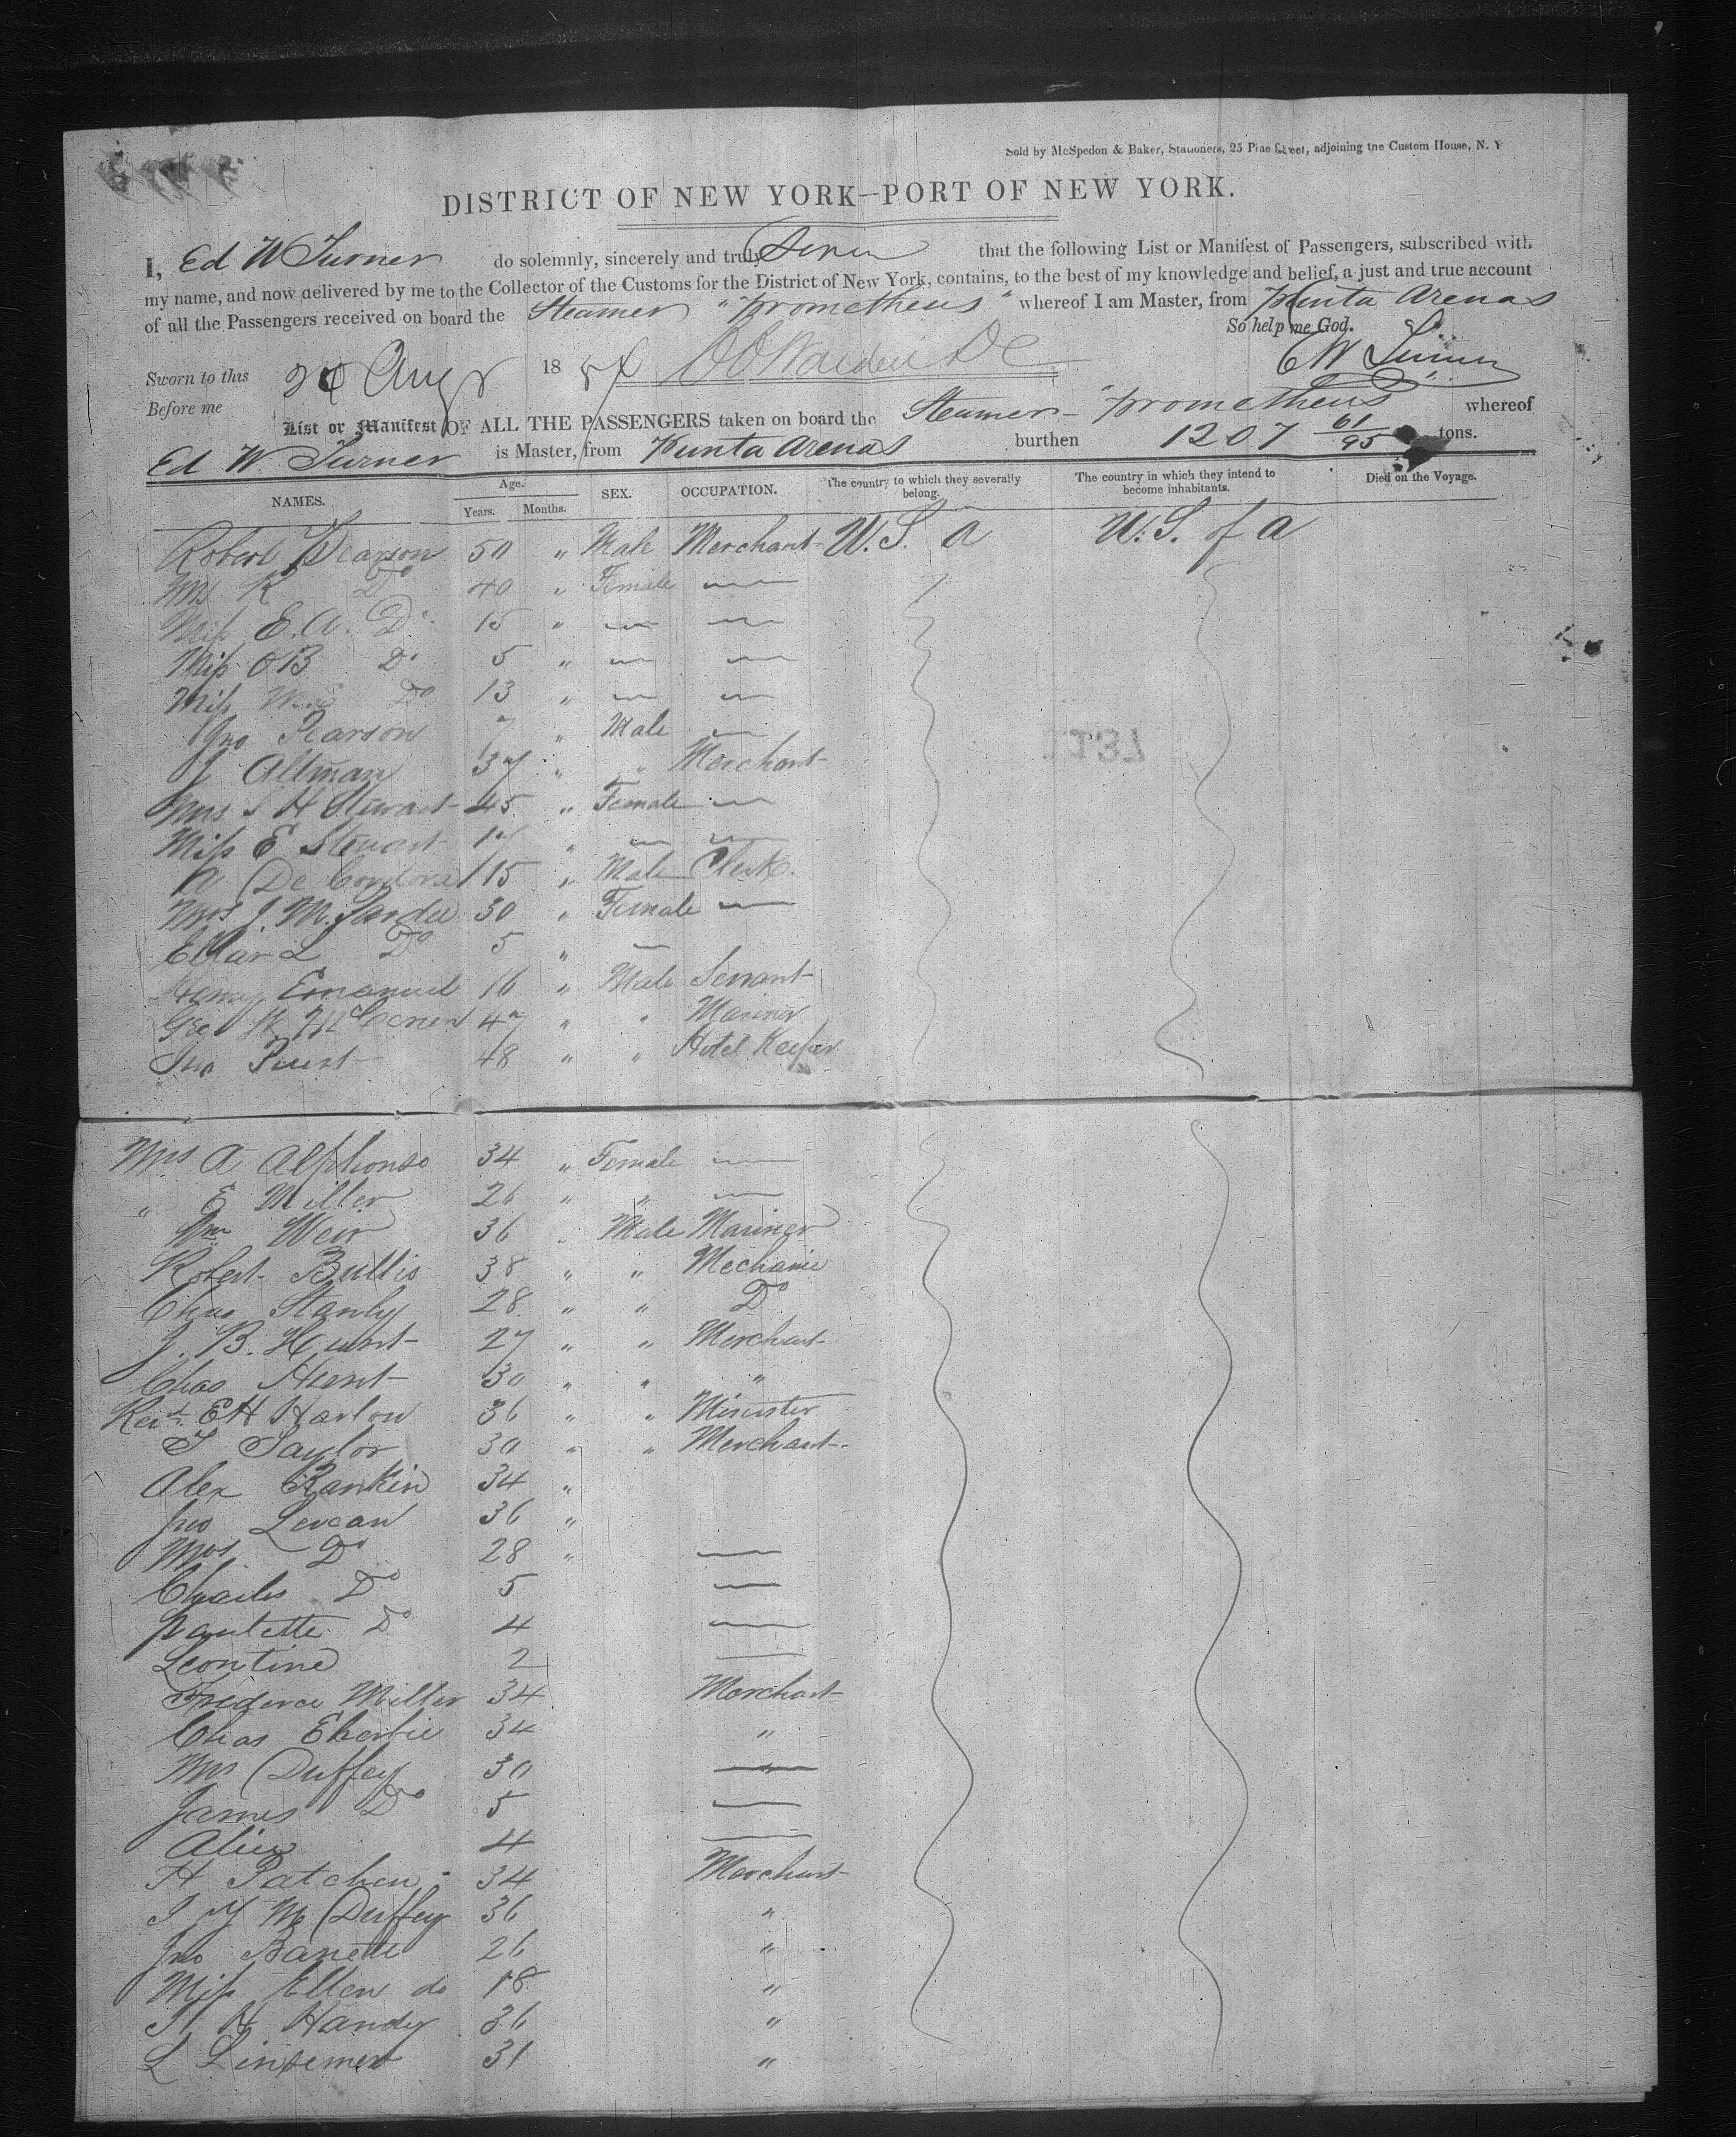 Sold by McSpedon & Baker, Stationers, 25 Pine Street, adjoining the Custom House, N. Y
DISTRICT OF NEW YORK—PORT OF NEW YORK.
I, Ed W Turner do solemnly, sincerely and truly Swear that the following List or Manifest of Passengers, subscribed with
my name, and now delivered by me to the Collector of the Customs for the District of New York, contains, to the best of my knowledge and belief, a just and true account
of all the Passengers received on board the Steamer "Prometheus" whereof I am Master, from Punta Arenas
So help me God.
Sworn to this 24 Augt 1854 E W Turner
Before me
List or Manifest OF ALL THE PASSENGERS taken on board the Steamer "Prometheus whereof
Ed W. Turner is Master, from Punta Arenas burthen 1207 61/95 tons.
NAMES. Age. Years. Months. SEX. OCCUPATION. The country to which they severally belong. The country in which they intend to become inhabitants. Died on the Voyage.
Robert Pearson 50 " Male Merchant U.S. a U.S. of a
Mrs R Do 40 " Female —
Miss E. A. Do 15 " — —
Miss O B Do 5 " — —
Miss Do 13 " — —
Jno Pearson 7 " Male —
J Altman 37 " " Merchant
Mrs S H Stewart 45 " Female —
Miss E Stewart 17 " — —
A De Cordova 15 " Male Clerk.
Mrs J. M. 30 " Female —
L Do 5 " —
Henry Emanuel 16 " Male Servant
Geo W 47 " " Mariner
Jno 48 " " Hotel Keeper
Mrs A Alphonso 34 " Female —
" E Miller 26 " " —
Wm Weir 36 " Male Mariner
Robert Bullis 38 " " Mechanic
Chas Stanly 28 " " Do
J. B. Hunt 27 " " Merchant
Chas Hunt 30 " " "
Revd. E H Harlow 36 " " Minister
T Saylor 30 " " Merchant
Alex Rankin 34 "
Jno Levean 36 "
Mrs Do 28 " —
Charles Do 5 —
Paulette Do 4 —
Leontine 2 —
Frederce Miller 34 Merchant
Chas Eberlie 34 "
Mrs Duffey 30 —
James Do 5 —
Alice 4 —
H Patchen 34 Merchant
J Y Mc Duffey 36 "
Jno 26 "
Miss Ellen do 18 "
H Handy 36 "
L Linsemer 31 "
1137